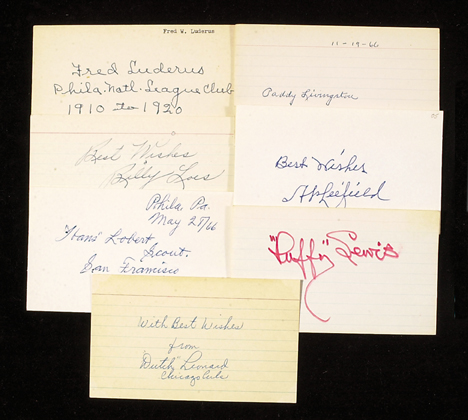 Fred W. Luderus
Fred Luderus
Phila. Natl. League Club
1910 to 1920
11-19-66
Paddy Livingston
Best Wishes
Billy Loes
Best Wishes
Phila Pa.
May 25/66
"Hans" Lobert
Scout.
San Francisco
"Duffy" Lewis
With Best Wishes
from
"Dutch" Leonard
Chicago Cubs